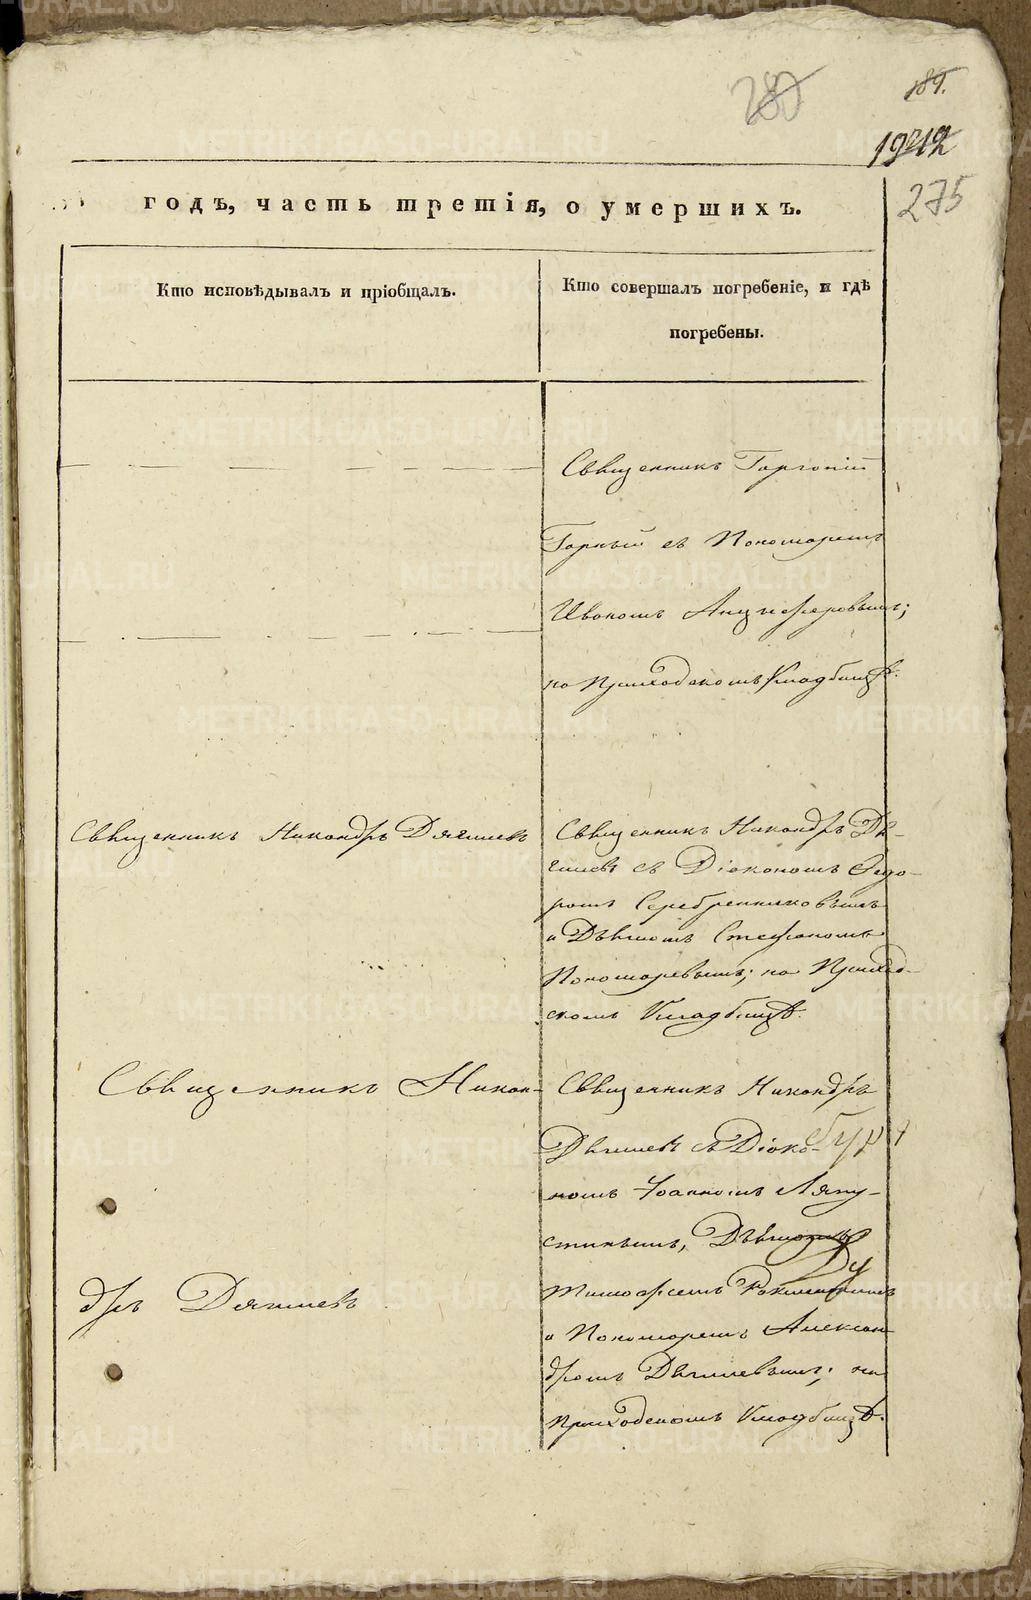 280
189.
275
годъ, часть третія, о умершихъ.
Кто исповѣдывалъ и пріобщалъ.
Кто совершалъ погребеніе, и гдѣ
погребены.
Священникъ Горгоній
Горный съ Пономаремъ
Иваномъ Анцыферовымъ;
на Приходскомъ Кладбищѣ.
Священникъ Никандръ Дягилевъ
Священникъ Никандръ Дя-
гилевъ съ Діакономъ Ѳедо-
ромъ Серебренниковымъ
и Дьячкомъ Стефаномъ
Пономаревымъ; на Приход-
скомъ Кладбищѣ.
Священникъ Никан-
дръ Дягилевъ
Священникъ Никандръ
Дягилевъ съ Діако-
номъ Іоанномъ Ляпу-
стинымъ, Дьячкомъ
и Пономаремъ Алексан-
дромъ Дягилевымъ; на
Приходскомъ Кладбищѣ.
METRIKI.GASO-URAL.RU